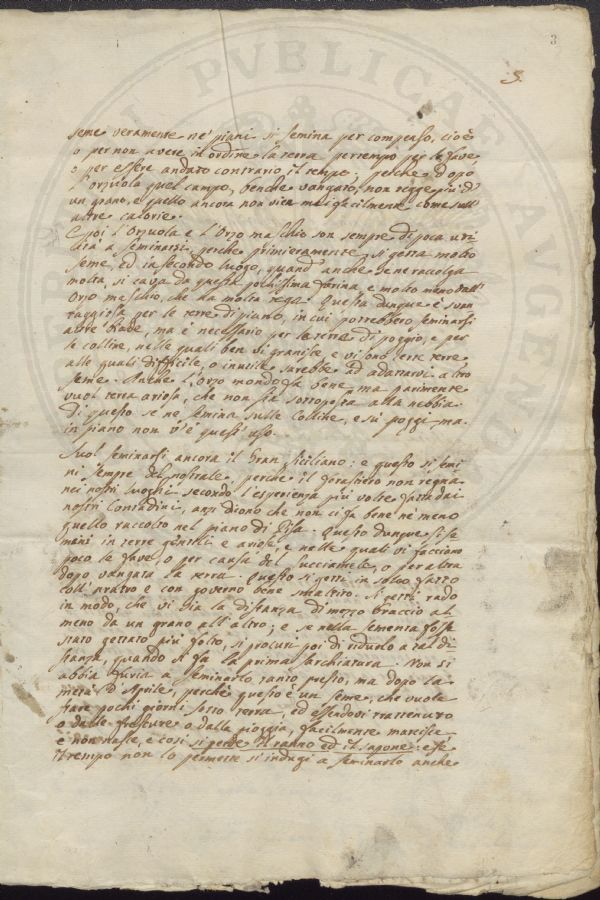 3
3.
seme veramente ne' piani si semina per compenso, cioè
o per non avere in ordine la terra pertempo per le fave
o per essere andato contrario il tempo; perche dopo
l'orzuola quel campo, benche vangato, non regge più d'
un grano, e quello ancora non vien mai facilmente come sull'
altre calorie.
E poi l'Orzuola e l'Orzo maschio son sempre di poca uti
lità a seminarsi, perche primieramente si getta molto
seme, ed in secondo luogo, quand' anche se ne raccolga
molta, si cava da questa pochissima farina, e molto meno dall'
Orzo maschio, che ha molta rega. Questa dunque è svan
taggiosa per le terre di piano, in cui potrebbero seminarsi
altre biade, ma è necessario per le terre di poggio, e per
le colline, nelle quali ben si granisce, e vi sono certe terre
alle quali difficile, o inutile sarebbe ad adattarvi altro
seme. Anche l'Orzo mondo fa bene, ma parimente
vuol terra ariosa, che non sia sottoposta alla nebbia
di questo se ne semina sulle Colline, e sù poggi, ma.
in piano non v'è quest' uso.
Suol seminarsi ancora il Gran Siciliano: e questo si semi
ni sempre del nostrale, perche il forastiero non regna
nei nostri luoghi secondo l'esperienza più volte fatta dai
nostri Contadini, anzi dicono che non ci fa bene nè meno
quello raccolto nel piano di Pisa. Questo dunque si se
mini in terre gentili e ariose, e nelle quali vi facciono
poco le fave, o per causa del Succiamele, o per altra
dopo vangata la terra. Questo si getti in solco fatto
coll' aratro e con governo bene smaltito. Si getti rado
in modo, che vi sia la distanza di mezzo braccio al
meno da un grano all' altro; e se nella sementa fosse
stato gettato più folto, si procuri poi di ridurlo a tal di
stanza, quando si fa la prima sarchiatura. Non si
abbia furia a seminarlo tanto presto, ma dopo la
metà d'Aprile, perchè questo è un seme, che vuole
stare pochi giorni sotto terra, ed essendovi trattenuto
o dalle frescure o dalla pioggia, facilmente marcisce
e non nasce, e così si perde il ranno ed il sapone: e se
il tempo non lo permette si indugi a seminarlo anche